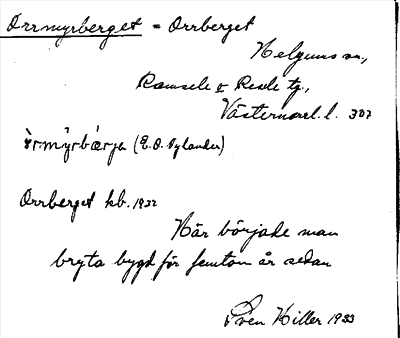 Orrmyrberget = Orrberget
Helgums sn,
Ramsele o Resele tg,
Västernorrl. l. 307
(E. O. Nylander)
Orrberget kb. 1932
Här började man
bryta bygd för femton år sedan
Sven Hiller 1933